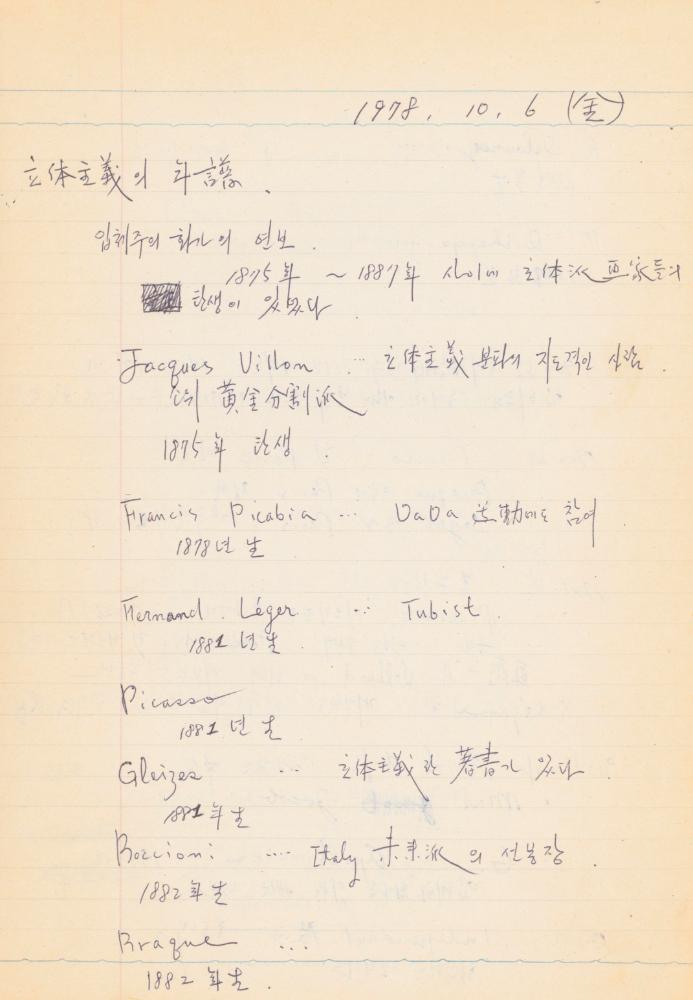 1978. 10. 6 (金)
立体主義의 年譜.
입체주의 화가의 연보.
1875年 ~ 1887年 사이에 立体派 画家들의
탄생이 있었다.
Jacques Villon ... 立体主義 분파의 지도적인 사람.
黃金分割派
1875年 탄생.
Francis Picabia ... DaDa 運動에도 참여.
1878년 生
Fernand Léger ... Tubist.
1881년 生.
Picasso
1881년 生.
Gleizes ... 立体主義란 著書가 있다.
1881年生
Boccioni .... Italy 未来派의 선봉장.
1882年生
Braque ...
1882年生.